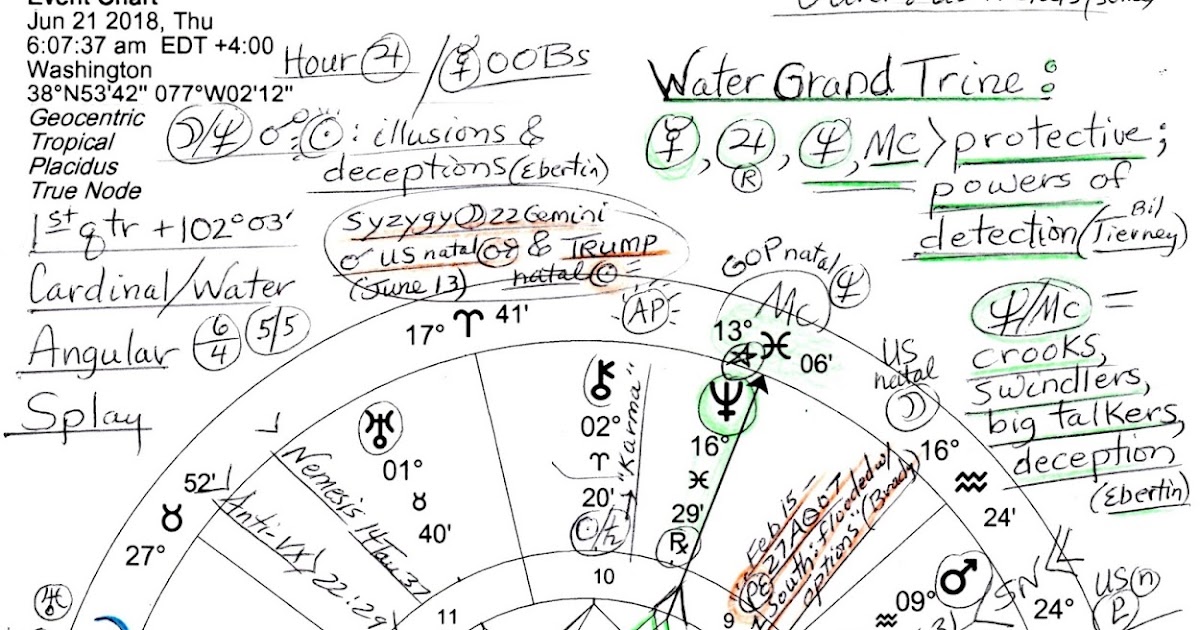 Event Chart
Jun 21 2018, Thu
6:07:37 am EDT +4:00
Washington
38°N53'42" 077°W02'12"
Geocentric
Tropical
Placidus
True Node
Hour ♃ / ☿ 00Bs
☽/♆ ☍ ☉: illusions &
deceptions (Ebertin)
1st qtr +102°03'
Cardinal/Water
Angular 6/4 5/5
Splay
Syzygy 22 Gemini
☌ US natal ♂ & TRUMP
(June 13) natal ☉ =
Water Grand Trine:
☿, ♃, ♆, Mc > protective;
R
powers of
detection (Bil Tierney)
GOP natal ♆
Mc
AP
♆/Mc =
crooks,
swindlers,
big talkers,
deception
(Ebertin)
US
natal
☽
17° ♈ 41'
13° ♓ 06'
16° ♒ 24'
52'
♉
27°
♅
01°
♉
40'
Nemesis 14 Tau 37
Anti-VX > 22:29
⚷
02°
♈
20'
"Karma"
☉/♄
♆
16°
♓
29'
℞
Feb 15 -
PE 27AQ07
South: "flooded w/
options" (Brady)
♂
09°
♒
SN
24°
US (n)
P
♃
11
10
9